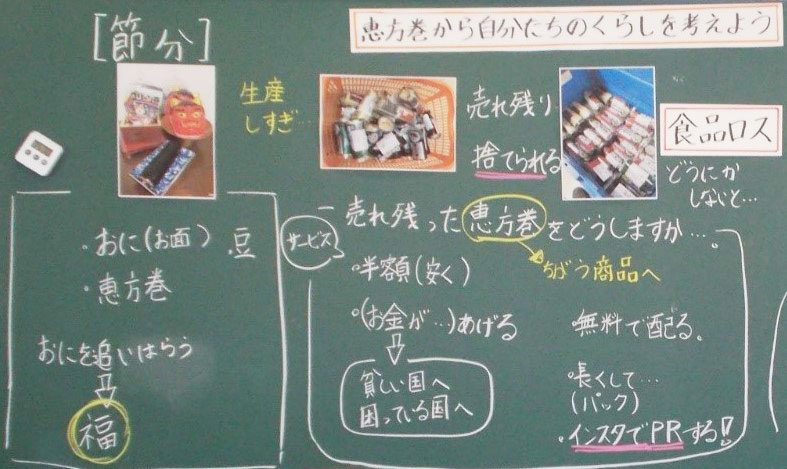 恵方巻から自分たちのくらしを考えよう
[節分]
生産
しすぎ…
売れ残り
捨てられる
食品ロス
どうにか
しないと…
・おに(お面) 豆
・恵方巻
おにを追いはらう
福
売れ残った恵方巻をどうしますか…。
サービス
ちがう商品へ
・半額(安く)
・(お金が…)あげる
貧しい国へ
困っている国へ
・無料で配る。
・長くして…
(パック)
・インスタでPRする!